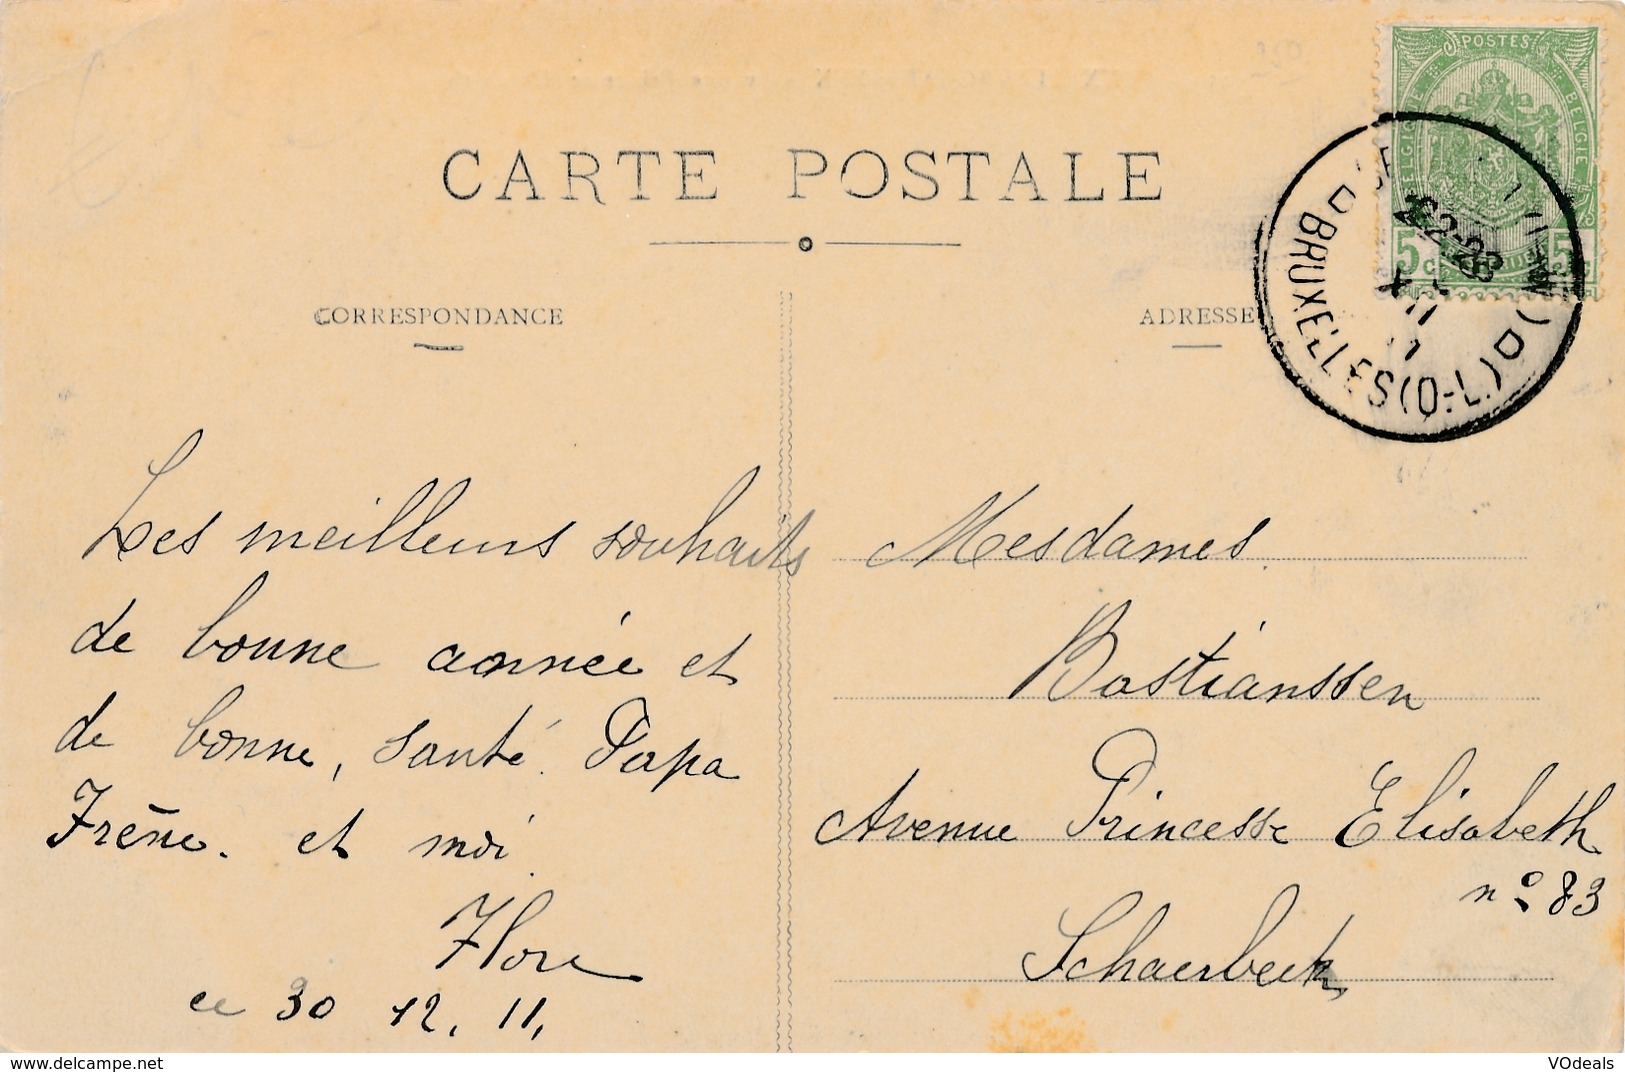 CARTE POSTALE
CORRESPONDANCE
ADRESSE
POSTES
BELGIQUE
BELGIE
5
5
BRUXELLES (Q-L.)
22-23
11
Les meilleurs souhaits
de bonne année et
de bonne, santé. Papa
Irène. et moi
Flore
ce 30 12. 11,
Mesdames.
Bastianssen
Avenue Princesse Elisabeth
n° 83
Schaerbeek
www.delcampe.net
VOdeals